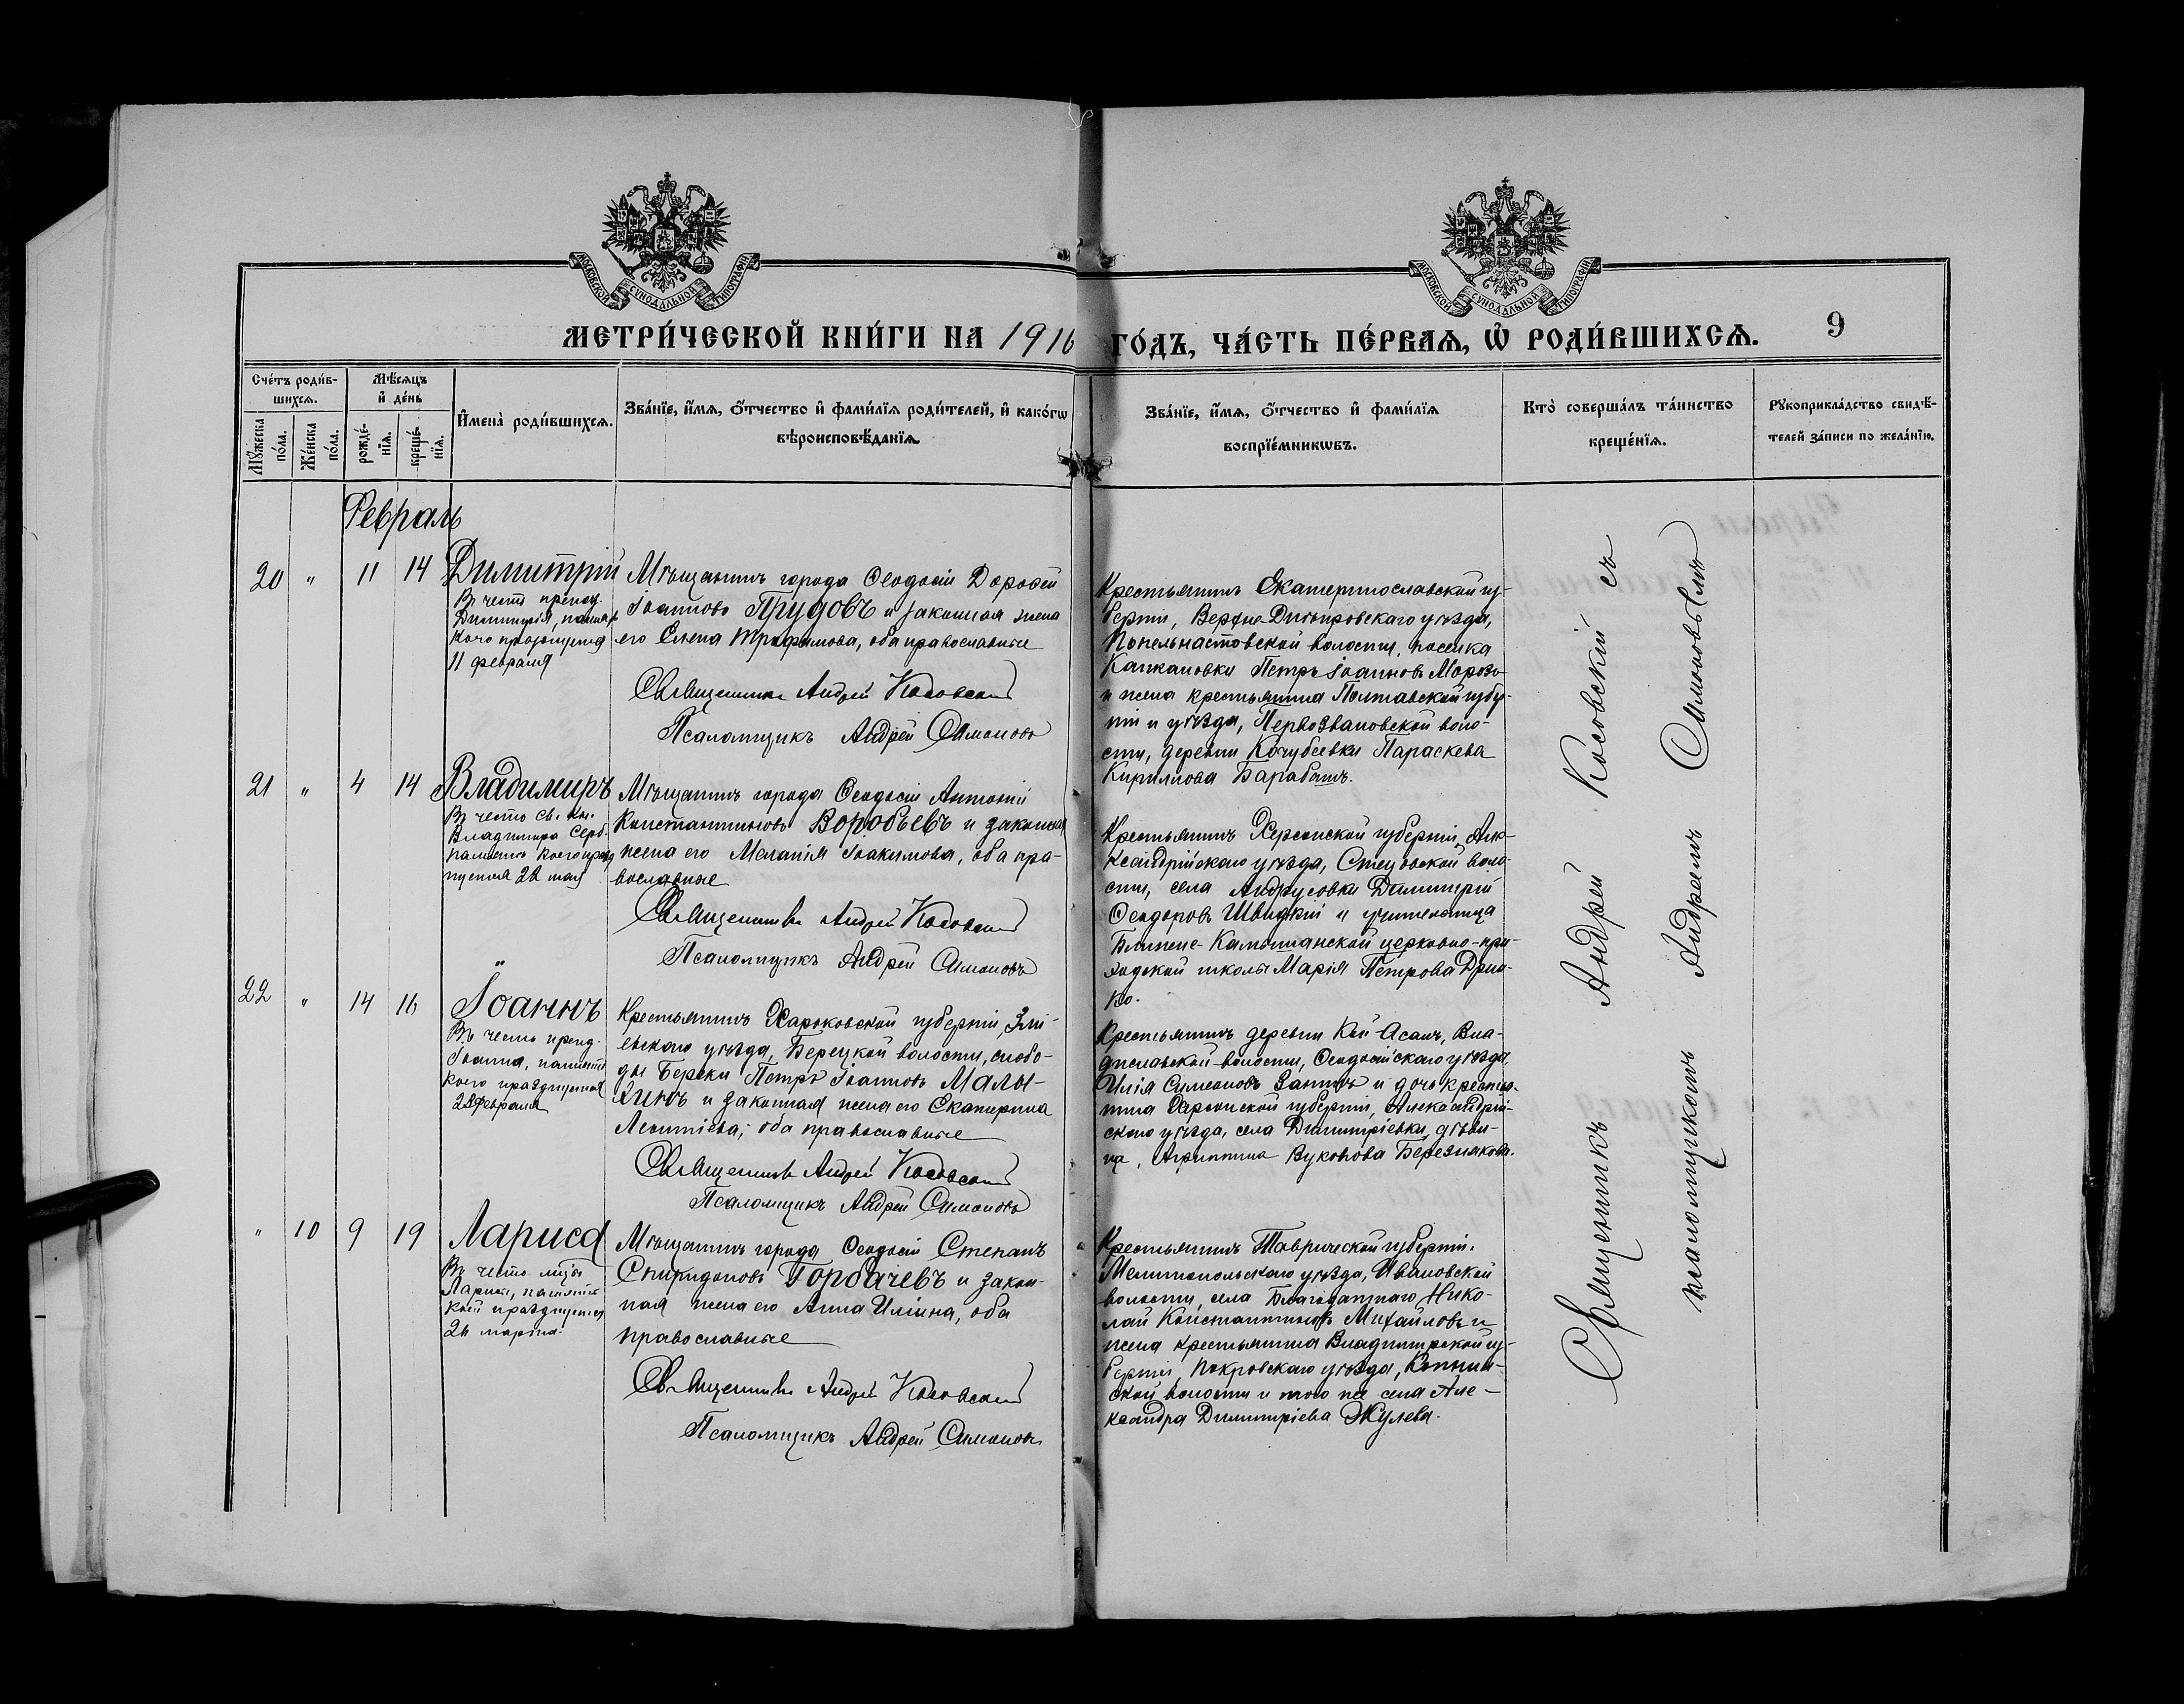 МОСКОВСКОЙ СѴНОДАЛЬНОЙ ТИПОГРАФІИ
МОСКОВСКОЙ СѴНОДАЛЬНОЙ ТИПОГРАФІИ
МЕТРИ́ЧЕСКОЙ КНИ́ГИ НА 1916
ГО́ДЪ, ЧА́СТЬ ПЕ́РВАѦ, Ѡ РОДИ́ВШИХСѦ.
9
Сче́тъ роди́в-
шихсѧ.
Мꙋ́жеска по́ла.
Же́нска по́ла.
Мѣ́сѧцъ
и҆ де́нь
рожде́-нїѧ.
креще́-нїѧ.
И҆мена̀ роди́вшихсѧ.
Зва́нїе, и҆́мѧ, ѻ҆́тчество и҆ фами́лїѧ роди́телей, и҆ како́гѡ
вѣроисповѣ́данїѧ.
Зва́нїе, и҆́мѧ, ѻ҆́тчество и҆ фами́лїѧ
воспрїе́мникѡвъ.
Кто̀ соверша́лъ та́инство
креще́нїѧ.
Рꙋкоприкла́дство свидѣ́-
телей за́писи по жела́нїю.
Февраль
20 " 11 14
Димитрій
Въ честь препод.
Димитрія, память
коего празднуется
11 февраля
Мѣщанинъ города Ѳеодосіи Дороѳей
Іоанновъ Прудовъ и законная жена
его Елена Трофимова, оба православные
Священникъ Андрей Косовскій
Псаломщикъ Андрей Симоновъ
Крестьянинъ Екатеринославской гу-
берніи, Верхне-Днѣпровскаго уѣзда,
волости, поселка
Петръ Іоанновъ Морозъ
и жена крестьянина Полтавской губер-
ніи и уѣзда, Первозвановской воло-
сти, деревни Кочубеевки Параскева
Кириллова Барабашъ.
21 " 4 14
Владимиръ
Въ честь св. кн.
Владимира Серб.
память коего празд
нуется 22 мая
Мѣщанинъ города Ѳеодосіи Антоній
Константиновъ Воробьевъ и законная
жена его Меланія Іоакимова, оба пра-
вославные
Священникъ Андрей Косовскій
Псаломщикъ Андрей Симоновъ
Крестьянинъ Херсонской губерніи, Але-
ксандрійскаго уѣзда, воло-
сти, села Андрусовки Димитрій
Ѳеодоровъ Швидкій и учительница
Ближне-Камышанской церковно-при-
ходской школы Марія Петрова
22 " 14 16
Іоаннъ
Въ честь препод.
Іоанна, память
коего празднуется
февраля
Крестьянинъ Харьковской губерніи, Змі-
евскаго уѣзда, Берецкой волости, слобо-
ды Береки Петръ Іоанновъ Малы-
хинъ и законная жена его Екатерина
Леонтіева, оба православные
Священникъ Андрей Косовскій
Псаломщикъ Андрей Симоновъ
Крестьянинъ деревни Кой-Асанъ, Вла-
диславской волости, Ѳеодосійскаго уѣзда,
Илія Симеоновъ и дочь крестья-
нина Херсонской губерніи, Александрій-
скаго уѣзда, села Димитріевки, дѣви-
ца, Агриппина Вуколова Березнякова.
" 10 9 19
Лариса
Въ честь муц.
Ларисы, память
коей празднуется
26 марта.
Мѣщанинъ города Ѳеодосіи Степанъ
Спиридоновъ Горбачевъ и закон-
ная жена его Анна Ильина, оба
православные
Священникъ Андрей Косовскій
Псаломщикъ Андрей Симоновъ
Крестьянинъ Таврической губерніи,
Мелитопольскаго уѣзда, Ивановской
волости, села Благодатнаго Нико-
лай Константиновъ Михайловъ и
жена крестьянина Владимірской гу-
берніи, Покровскаго уѣзда,
ской волости и того же села Але-
ксандра Димитріева Жулева.
Священникъ Андрей Косовскій съ
псаломщикомъ Андреемъ Симоновымъ